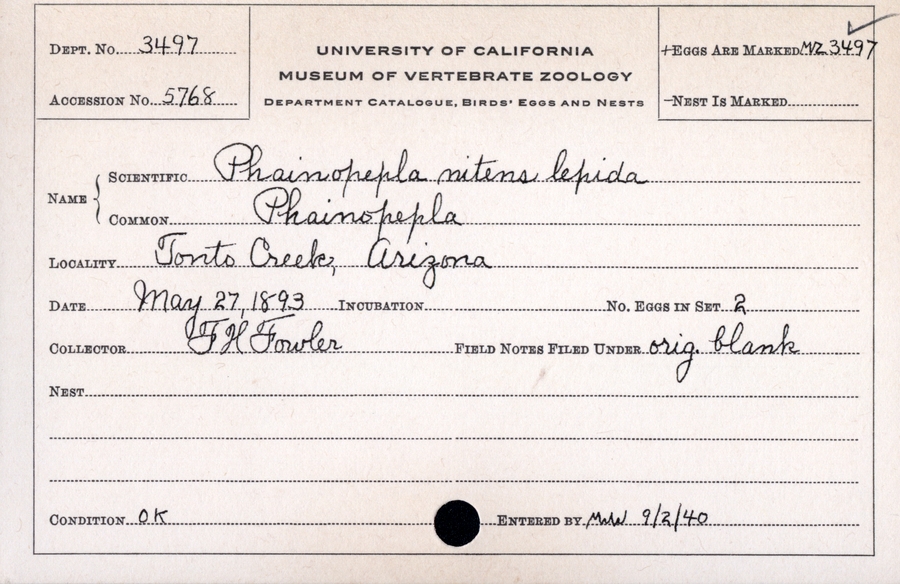 DEPT. No. 3497
UNIVERSITY OF CALIFORNIA
MUSEUM OF VERTEBRATE ZOOLOGY
DEPARTMENT CATALOGUE, BIRDS' EGGS AND NESTS
+EGGS ARE MARKED MVZ 3497
ACCESSION No. 5768
-NEST IS MARKED
NAME { SCIENTIFIC Phainopepla nitens lepida
COMMON Phainopepla
LOCALITY Tonto Creek, Arizona
DATE May 27, 1893 INCUBATION No. EGGS IN SET 2
COLLECTOR F H Fowler FIELD NOTES FILED UNDER orig. blank
NEST
CONDITION OK ENTERED BY 9/2/40